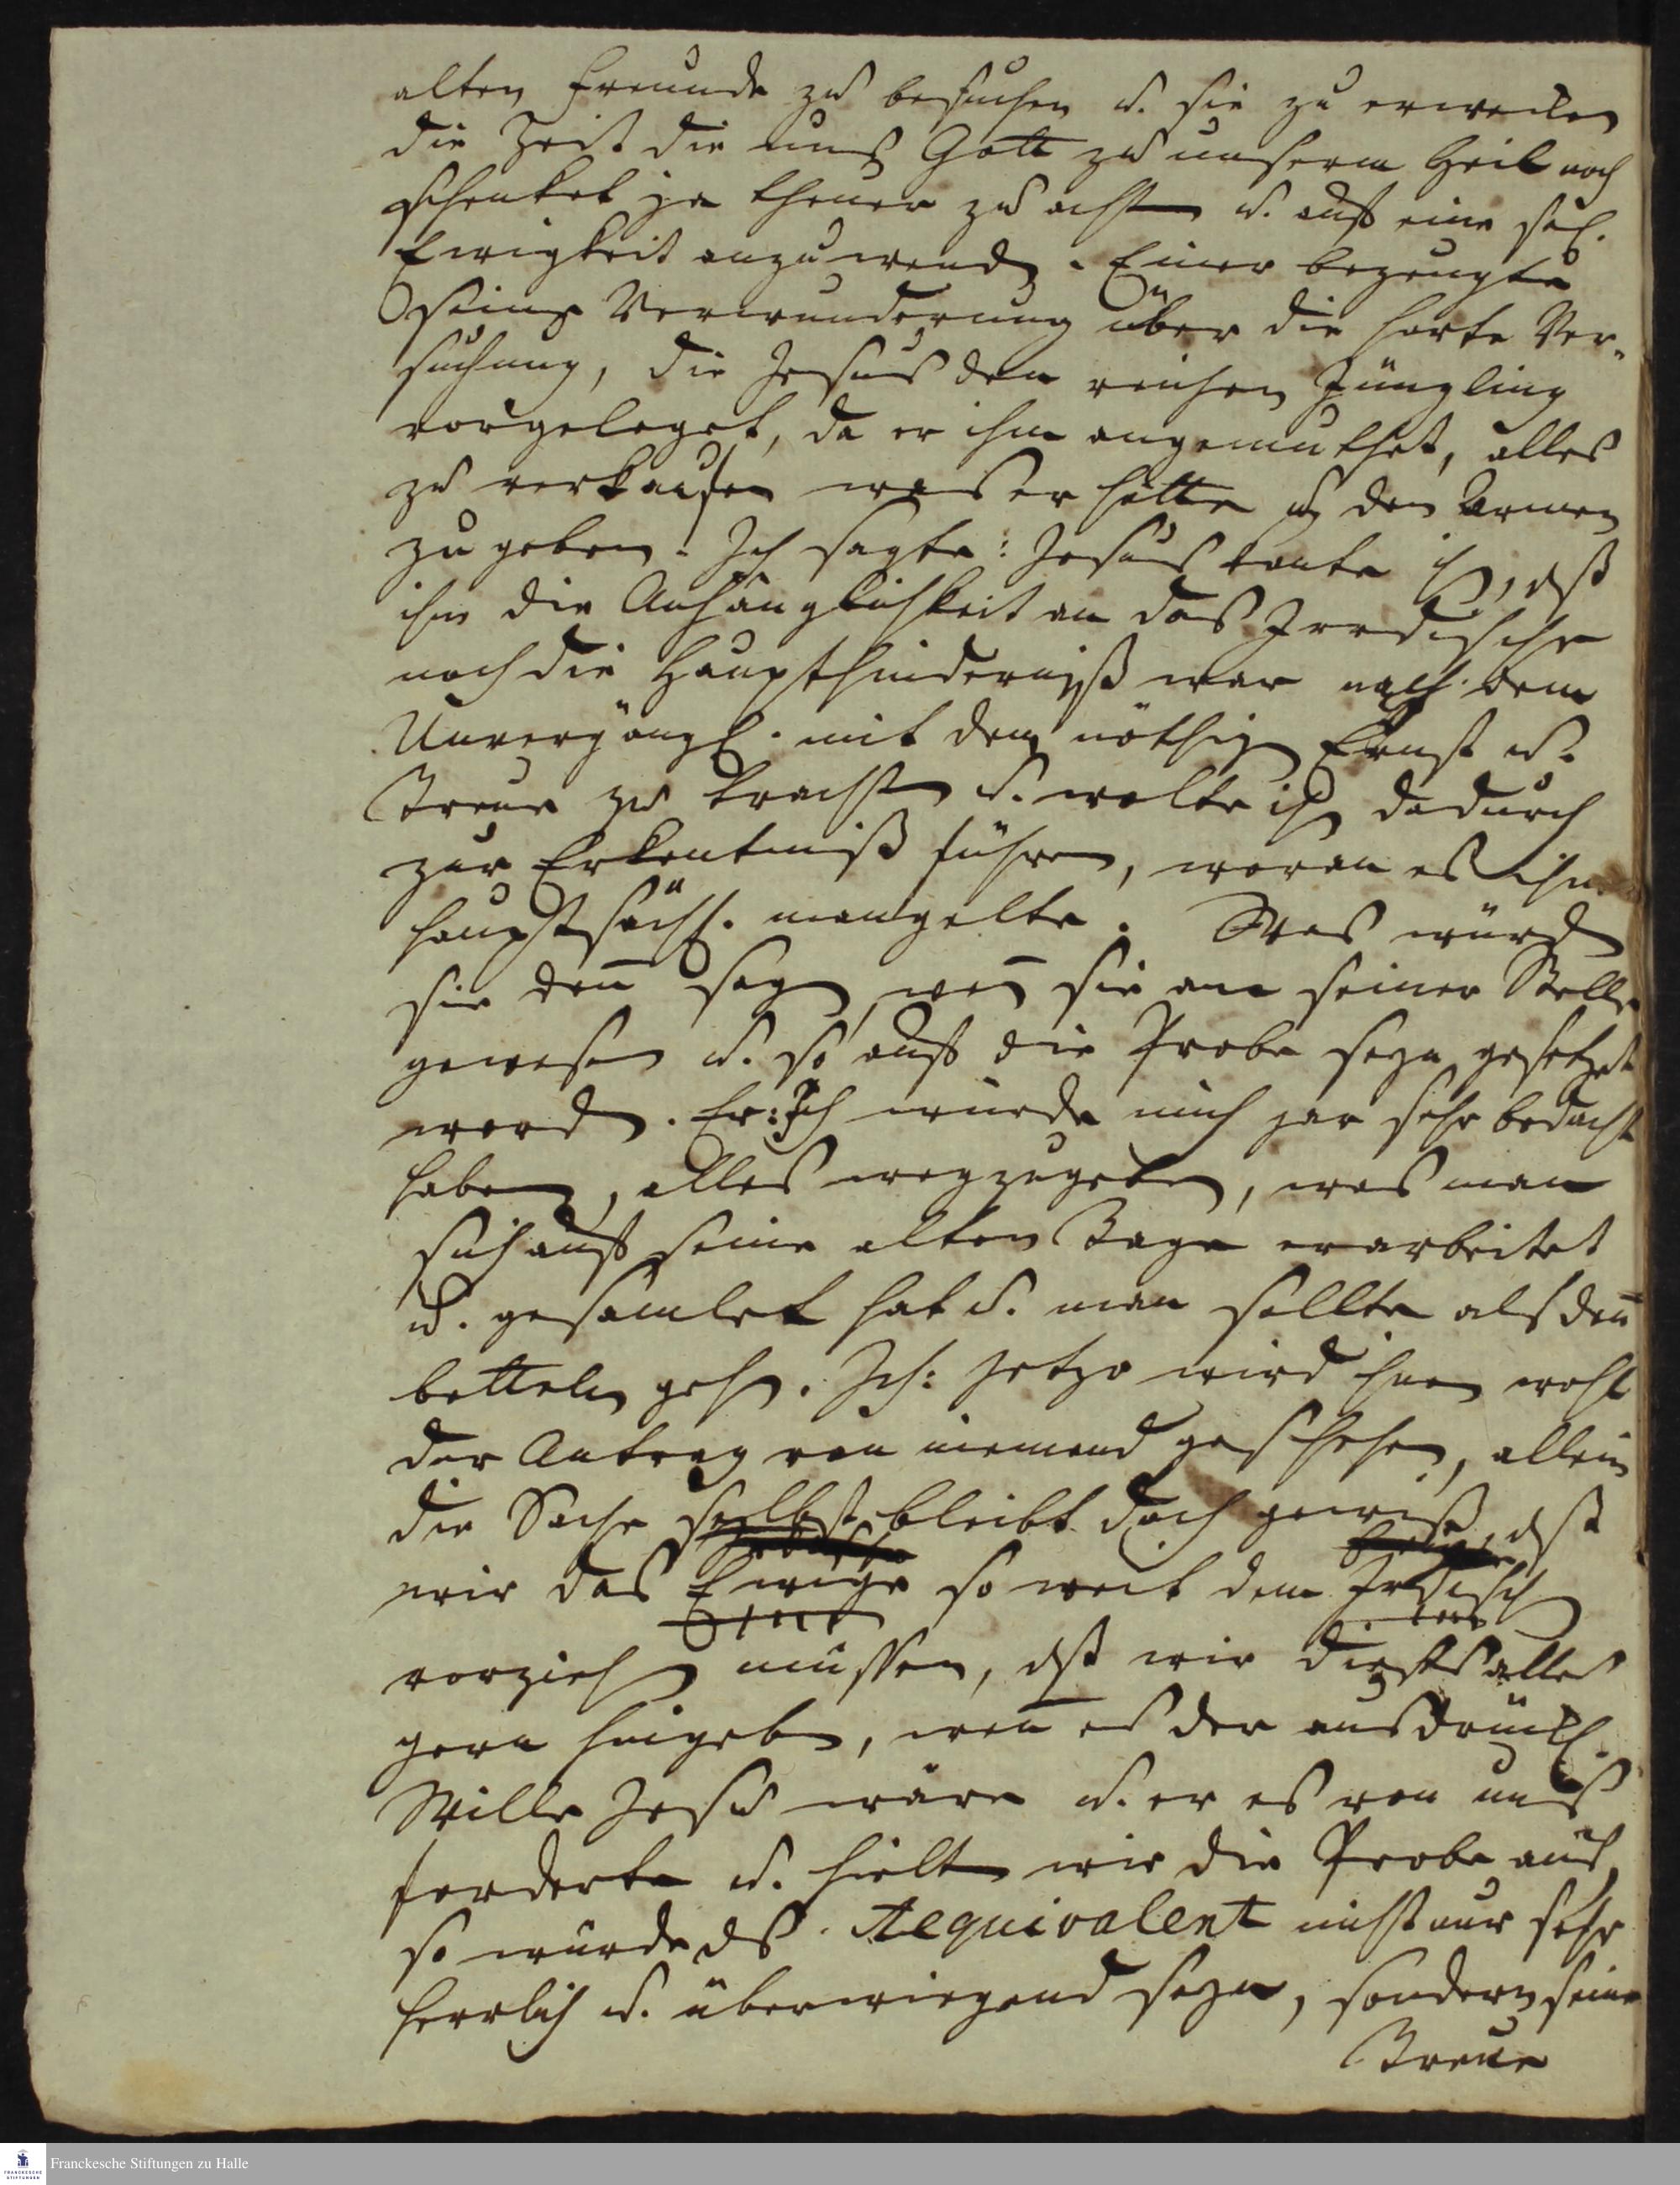 alten Freunde zu besuchen u. sie zu erwecken
die Zeit die uns Gott zu unserm Heil noch
schenket ja theuer zu achten u. auf eine sel.
Ewigkeit anzuwenden. Einer bezeugte
seine Verwunderung über die harte Ver-
suchung, die Jesus dem reichen Jüngling
vorgeleget, da er ihm angemuthet, alles
zu verkaufen was er hätte u. den Armen
zu geben. Ich sagte: Jesus kante ihn, dß
ihm die Anhänglichkeit an das Irrdische
noch die Haupthinderniß war nach dem
Unvergängl. mit dem nöthigen Ernst u.
Treue zu trachten u. wolte ihn dadurch
zur Erkentniß führen, woran es ihm
hauptsächl. mangelte. Was würden
sie den̅ sagen, wen̅ sie an seiner Stelle
gewesen u. so auf die Probe seyn gesetzet
worden. Er: Ich würde mich gar sehr bedacht
haben, alles wegzugeben, was man
sich auf seine alten Tage erarbeitet
u. gesamlet hat u. man sollte alsden̅
betteln gehen. Ich: Jetzo wird ihnen wohl
der Antrag von niemand geschehen, allein
die Sache selbst bleibt doch gewiß, dß
wir das Ewige so weit dem Irdischen
vorziehen müssen, dß wir dieses alles
gern hingeben, wen̅ es der ausdrückl.
Wille Jesu wäre u. er es von uns
forderte u. hielten wir die Probe aus,
so würde ds Aequivalent nicht nur sehr
herrlich u. überwiegend seyn, sondern seine
Treue
Franckesche Stiftungen zu Halle
FRANCKESCHE
STIFTUNGEN